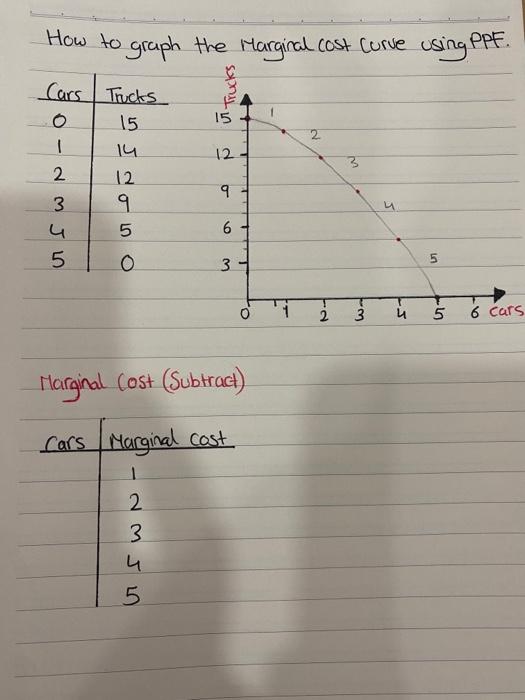 How to graph the Marginal cost curve using PPF.
Cars Trucks
0 15
1 14
2 12
3 9
4 5
5 0
Trucks
15
12
9
6
3
1
2
3
4
5
0 1 2 3 4 5 6 Cars
Marginal Cost (Subtract)
Cars Marginal cost
1
2
3
4
5